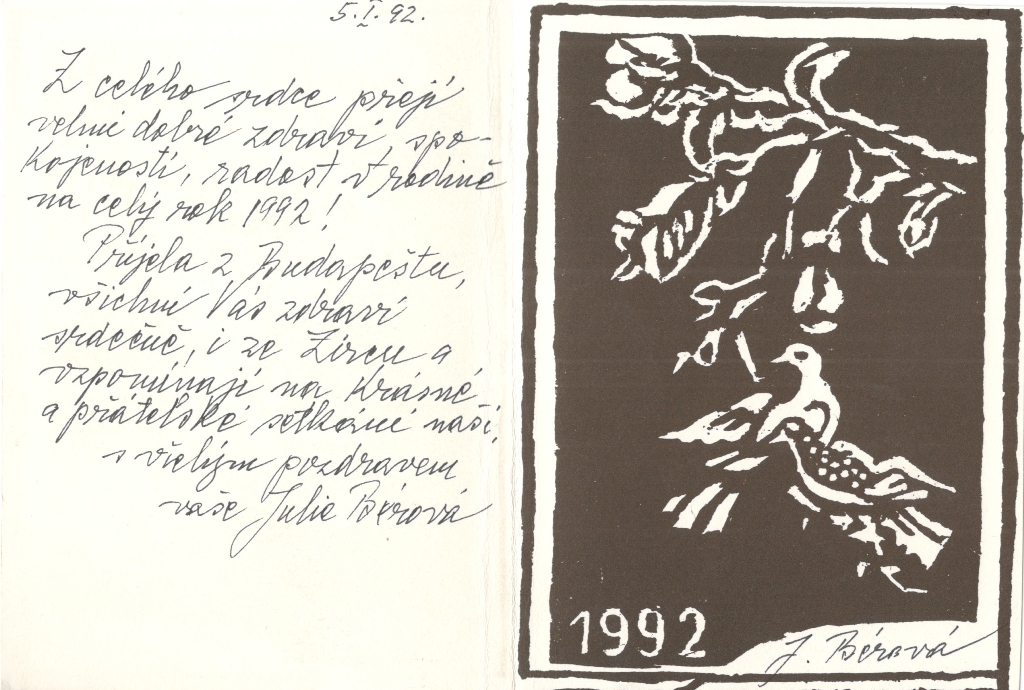 5.I.92.
Z celého srdce přeji
velmi dobré zdraví, spo-
kojenosti, radost v rodině
na celý rok 1992!
Přijela z Budapeštu,
všichni Vás zdraví
srdečně, i ze Zircu a
vzpomínají na krásné
a přátelské setkání naši,
s vřelým pozdravem
vaše Julie Bérová
1992
J. Bérová